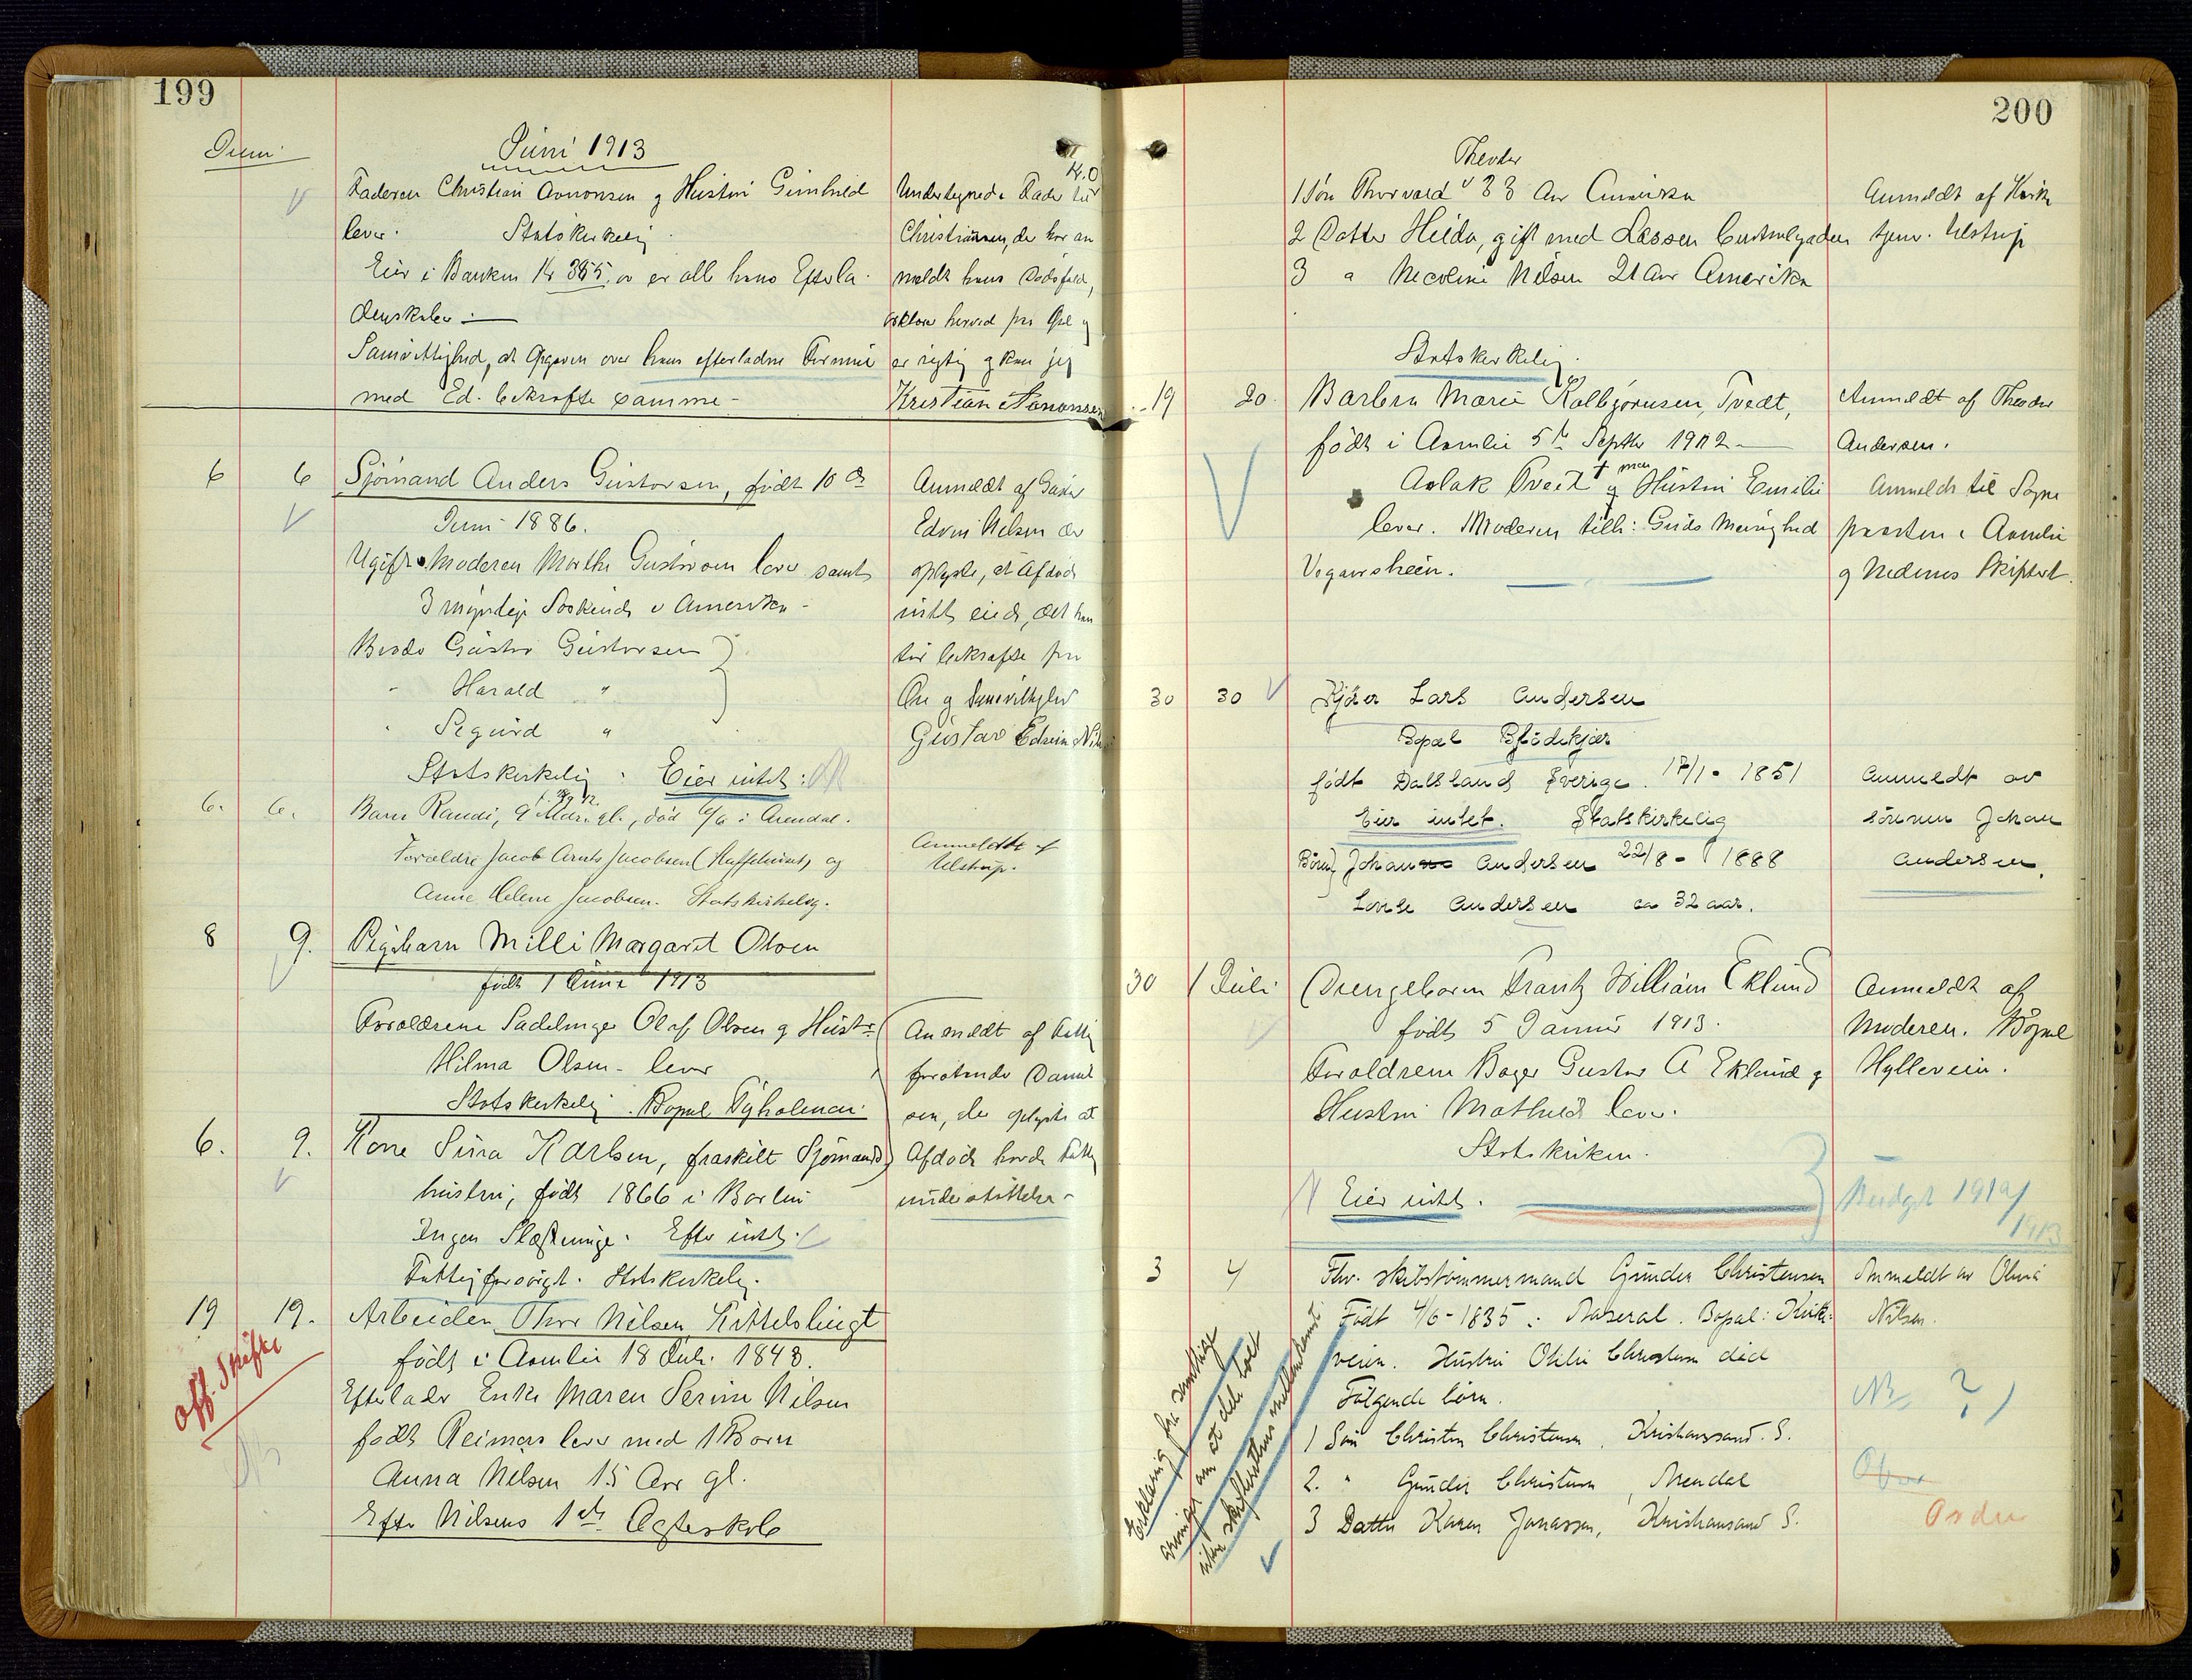 199
Juni
Juni 1913
Faderen Christian Aanonsen g Hustru Gunhild
lever. Statskirkelig
Eier i Banken Kr 385, er alle hans Efterla-
denskaber.
Samvittighed, at Opgaven over hans efterladne Formue
med Ed. bekræfte samme -
Undertegnede Fader til
Christiansen, der har an
meldt hans Dødsfald,
erklærer herved paa Ære g
er rigtig g kan jeg
Kristian Aanonsen
6 6 Sjømand Anders Gustavsen, født 10 de
Juni 1886.
Ugift. Moderen Marthe Gustavsen lever samt
3 myndige Søskende i Amerika -
Brodr Gustav Gustavsen
" Harald "
" Sigurd "
Statskirkelig. Eier intet.
Anmeldt af
Edvin Nilsen der
oplyste, at Afdøde
intet eiede, det han
tør bekræfte paa
Ære g Samvittighed
Gustav Edvin
6. 6. Barn Randi, 9 Mdr. gl., død 6/6 i Arendal.
Forældre Jacob Arnts Jacobsen og
Anne Helene Jacobsen. Statskirkelig.
Anmeldt af
Ulstrup.
8 9. Pigebarn Milli Margaret Olsen
født 1 Juni 1913
Forældrene Sadelmager Olaf Olsen g Hustr
Hilma Olsen - lever
Statskirkelig. Bopæl Tyholmen
6. 9. Kone Sina Karlsen, fraskilt Sjømands
hustru, født 1866 i Barbu
Ingen Slægtninge. Efter intet.
Fattigforsørgt. Statskirkelig.
Anmeldt af Fattig
forstander Daniel
sen, der oplyste at
Afdøde havde Fattig
understøttelse -
19 19. Arbeider Thor Nilsen Kittelsbugt
født i Aamli 18 Juli 1843.
Efterlader Enke Maren Serine Nilsen
født Reimers lever med 1 Barn
Anna Nilsen 15 Aar gl.
Efter Nilsens 1ste Ægteskab
Off. Skifte
200
Theodor
1 Søn Thorvald 33 Aar Amerika
2 Datter Hilda, gift med Lassen
3 " Nicoline Nilsen 21 Aar Amerika
Statskirkelig.
Anmeldt af Kirke
tjener Ulstrup
19 20. Barbra Marie Kolbjørnsen Tvedt,
født i Aamlie 5te Septbr 1912 -
Aslak Tveit g Hustru Emilie
lever. Moderen tilh: Guds Menighed
Vegaarsheien.
Anmeldt af Theodor
Andersen.
Anmeldt til Sogne
presten i Aamlie
g Nedenes Skifteret.
30 30 Kjører Lars Andersen
Bopæl Blødekjær
født Dalsland Sverige. 17/1 - 1851
Eier intet. Statskirkelig
Børn Johan Andersen 22/8 - 1888
Lovise Andersen ca 32 aar.
Anmeldt av
sønnen Johan
Andersen.
30 1 Juli Drengebarn Frantz William Eklund
født 5 Januar 1913.
Forældrene Bager Gustav A Eklund g
Hustru Mathilde lever.
Statskirken.
Eier intet.
Anmeldt af
Moderen. Bopæl
Hylleveien.
Budget 1912/
1913
3 4 Fhv. skibstømmermand Gunder Christensen
Født 4/6 - 1835 i Aaseral. Bopæl: Kirke-
veien. Hustru Otilie Christensen død
Følgende børn.
1 Søn Christen Christensen, Kristianssand S.
2. " Gunder Christensen, Arendal
3 Datter Karen Jonassen, Kristianssand S.
Anmeldt av Olava
Nilsen.
NB ?
Orden
Erklæring fra samtlige
arvinger om at dele boet
uten skifterettens mellemkomst